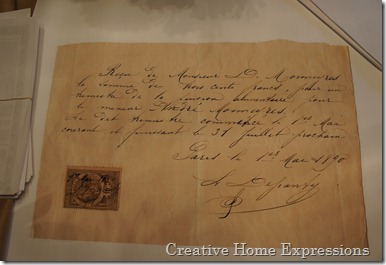 Reçu de Monsieur D.
la somme de trois cents francs, pour un
trimestre de la pension alimentaire pour
le mineur André
Le dit trimestre commence 1er Mai
courant et finissant le 31 juillet prochain
Paris le 1er Mai 1890
Creative Home Expressions